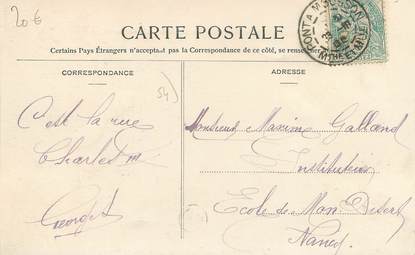 20 €
CARTE POSTALE
Certains Pays Étrangers n'acceptant pas la Correspondance de ce côté, se
CORRESPONDANCE
54
C'est la rue
Charles III
Georges
ADRESSE
Monsieur Maxime Galland
Instituteur
Ecole de Mon Désert
Nancy
PONT A MOUSSON
MTHE ET MLLE